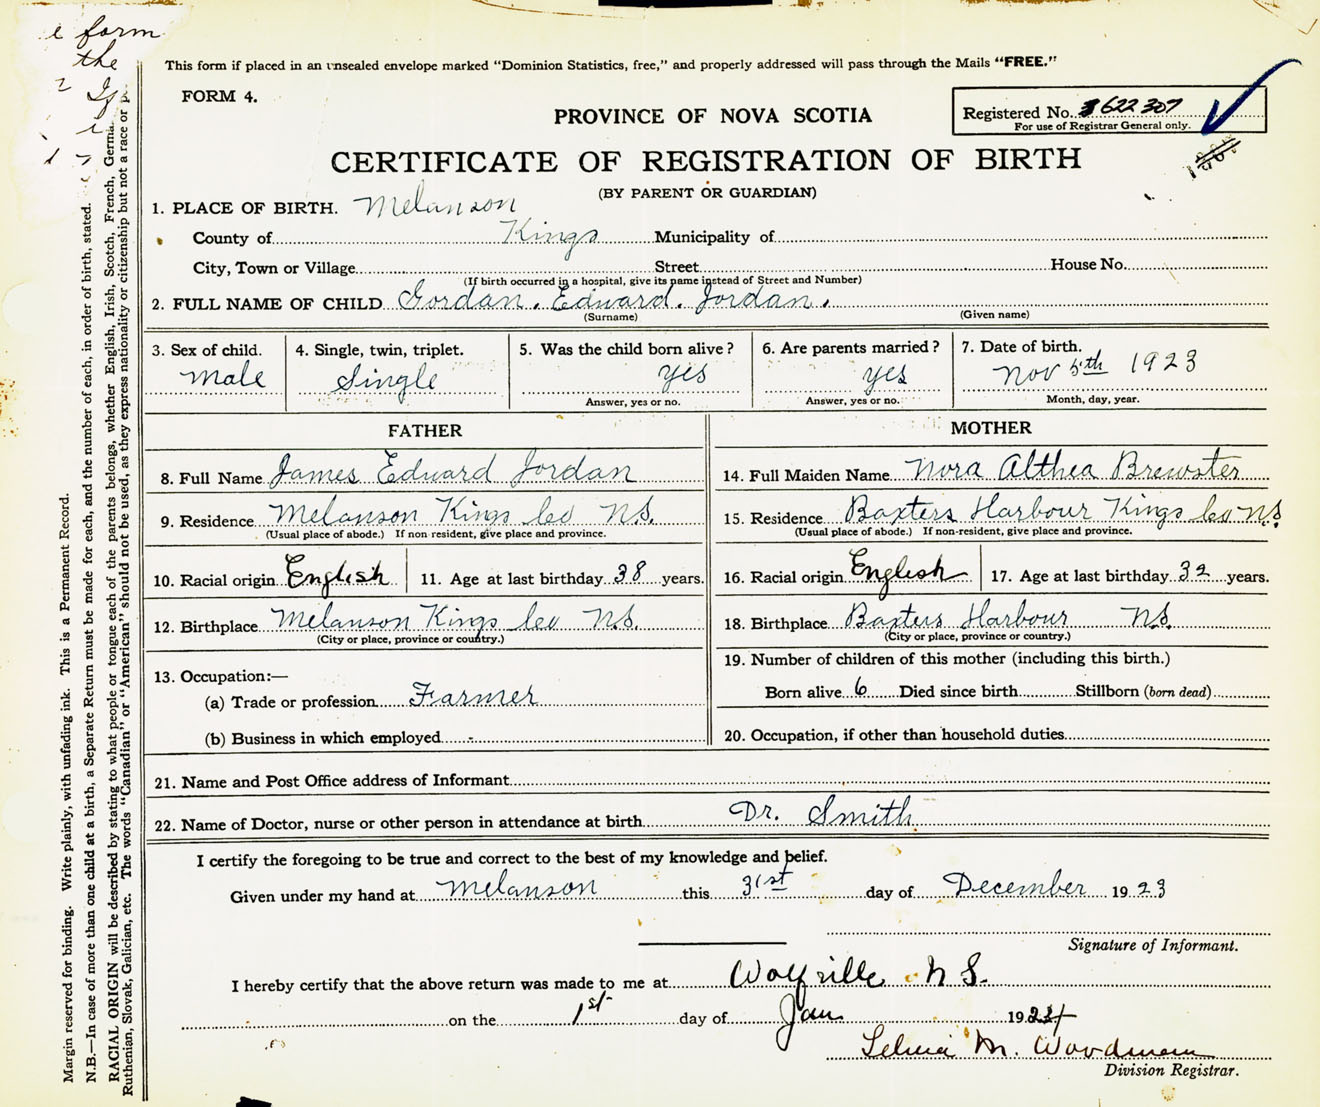 e form
the
If
This form if placed in an unsealed envelope marked "Dominion Statistics, free," and properly addressed will pass through the Mails "FREE."
FORM 4.
PROVINCE OF NOVA SCOTIA
Registered No. 622307
For use of Registrar General only.
CERTIFICATE OF REGISTRATION OF BIRTH
(BY PARENT OR GUARDIAN)
1. PLACE OF BIRTH. Melanson
County of Kings Municipality of
City, Town or Village Street House No.
(If birth occurred in a hospital, give its name instead of Street and Number)
2. FULL NAME OF CHILD Gordan. Edward. Jordan.
(Surname) (Given name)
3. Sex of child. 4. Single, twin, triplet. 5. Was the child born alive? 6. Are parents married? 7. Date of birth.
Male Single yes yes Nov 5th 1923
Answer, yes or no. Answer, yes or no. Month, day, year.
FATHER MOTHER
8. Full Name James Edward Jordan 14. Full Maiden Name Nora Althea Brewster
9. Residence Melanson Kings Co N.S. 15. Residence Baxters Harbour Kings Co N.S.
(Usual place of abode.) If non-resident, give place and province. (Usual place of abode.) If non-resident, give place and province.
10. Racial origin English 11. Age at last birthday 38 years. 16. Racial origin English 17. Age at last birthday 32 years.
12. Birthplace Melanson Kings Co N.S. 18. Birthplace Baxters Harbour N.S.
(City or place, province or country.) (City or place, province or country.)
13. Occupation:— 19. Number of children of this mother (including this birth.)
(a) Trade or profession Farmer Born alive 6 Died since birth Stillborn (born dead)
(b) Business in which employed 20. Occupation, if other than household duties
21. Name and Post Office address of Informant
22. Name of Doctor, nurse or other person in attendance at birth Dr. Smith
I certify the foregoing to be true and correct to the best of my knowledge and belief.
Given under my hand at Melanson this 31st day of December 1923
Signature of Informant.
I hereby certify that the above return was made to me at Wolfville N S.
on the 1st day of Jan 1924
M. Woodman
Division Registrar.
Margin reserved for binding. Write plainly, with unfading ink. This is a Permanent Record.
N.B.—In case of more than one child at a birth, a Separate Return must be made for each, and the number of each, in order of birth, stated.
RACIAL ORIGIN will be described by stating to what people or tongue each of the parents belongs, whether English, Irish, Scotch, French, Germa
Ruthenian, Slovak, Galician, etc. The words "Canadian" or "American" should not be used, as they express nationality or citizenship but not a race or p